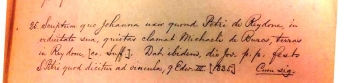 26. Scriptum quo Johanna uxor quond. Petri de Reydone, in
viduitate sua, quietas clamat Michaeli de Bures, terras
in Reydone [co. Suff.]. Dat. ibidem, die Jov. p. p. festo
S. Petri quod dicitur ad vincula, 9 Edw. III. [1335]. Cum sig.